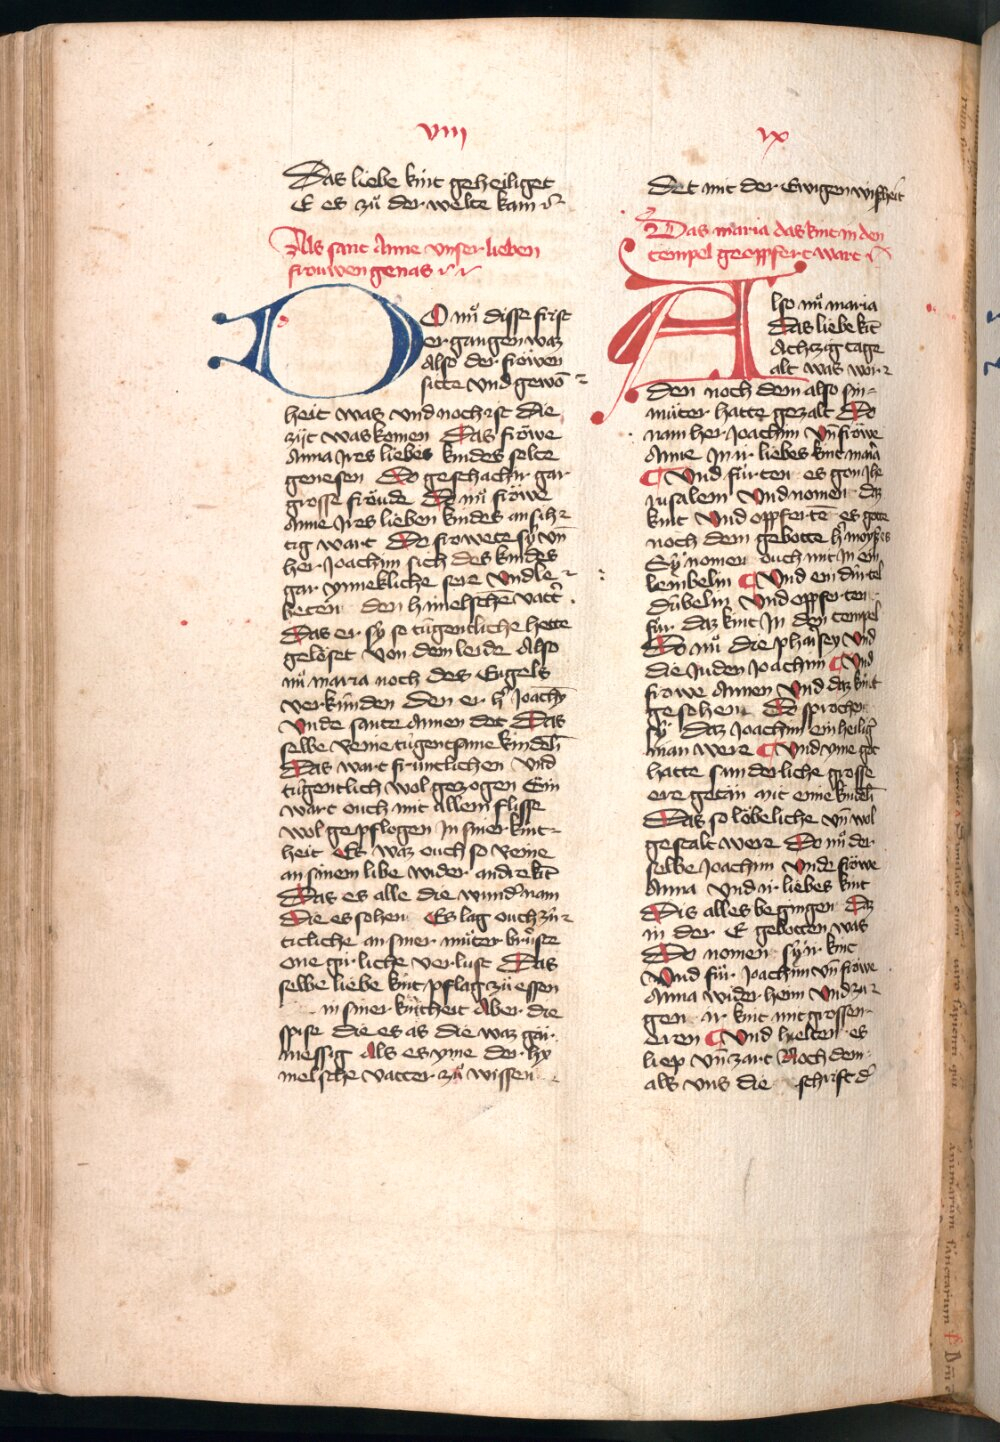 viii
Das liebe kint geheiliget
E es zů der welte kam
Als sant Anne vnser lieben
frouwen genas
DO nů disse frist
er gangen waz
Also der fröwen
sitte vnd gewō
heit was vnd noch ist die
zijt was komen Das fröwe
Anna Jres liebes kindes solte
genesen Do geschach ir gar
grosse fröude Do nů fröwe
Anne Jres lieben kindes ansich
tig wart Do frowete sy vn̄
her Joachim sich des kindes
gar ynnekliche sere Vnd le
beten den himelschē vatt̄
Das er sy so tůgentliche hette
gelöset von dem leide Also
nů maria noch des Engels
verkünden den er h̄ Joachȳ
Vnde sante Annen det Das
selbe reine tůgentsame kindel̄
Das wart früntlichen vnd
tůgentlich wol gezogen Ein
wart ouch mit allem flisse
wol gepflogen Jn siner kint
heit Es waz ouch so reine
an sinem libe wider andre kīt
Das es alle die wund̄ nam
Die es sohen Es lag ouch zů
ticliche an siner můter brůste
one gir liche verlust Das
selbe liebe kint pflag zů essen
in siner kintheit Aber die
spise die es as die waz gar
messig Als es yme der hy
melsche vatter zů wissen
ix
Det mit der Ewigen wisheit
Das maria das kint in den
tempel geopffert wart
Also nů maria
Das liebe kīt
Achzig tage
alt was wor
den noch dem also sin
můter hatte gezalt Do
nam her Joachim Vn̄ fröwe
Anne Jn ir liebes kint maria
Vnd fůrten es gon Jhe
rusalem Vnd nomen daz
kint Vnd opffertē es gotte
noch dem gebotte h̄ moyses
Sy nomen ouch mit Jn ein
lembelin Vnd ein důrtel
důbelin Vnd opfferten
fůr daz kint Jn den tempel
Do nů die phariseỹ Vnd
die Juden Joachim Vnd
frowe Annen Vnd daz kint
gesohen Do sprochen
sy daz Joachim ein heiliḡ
man were Vnd yme got
hatte sunderliche grosse
ere getan mit eime kindel̄
Das so löbeliche vn̄ wol
gestalt were Do nů der
selbe Joachim Vnde fröwe
Anna Vnd ir liebes kint
Dis alles begingen Daz
in der E gebotten was
Do nomen sy ir kint
Vnd fůr Joachim vn̄ fröwe
Anna wider heim Vnd zu
gen ir kint mit grossen
eren Vnd hielten es
liep vn̄ zart Noch dem
als vns die schrift d̄